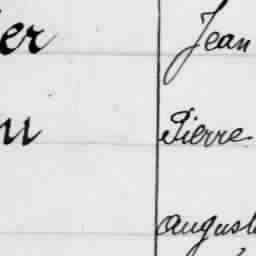 er Jean
Pierre
August